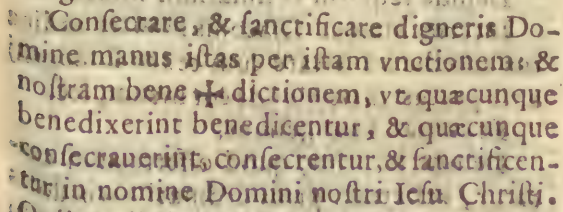 Conſecrare, & ſanctificare digneris Do-
mine manus iſtas per iſtam vnctionem: &
noſtram bene ✠ dictionem, vt quæcunque
benedixerint benedicentur, & quæcunque
conſecrauerint, conſecrentur, & ſanctificen-
tur in nomine Domini noſtri Ieſu Chriſti.